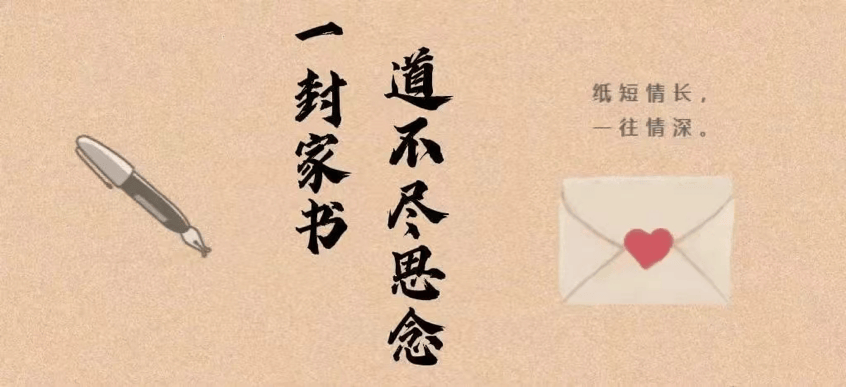 一封家书
道不尽思念
纸短情长，
一往情深。